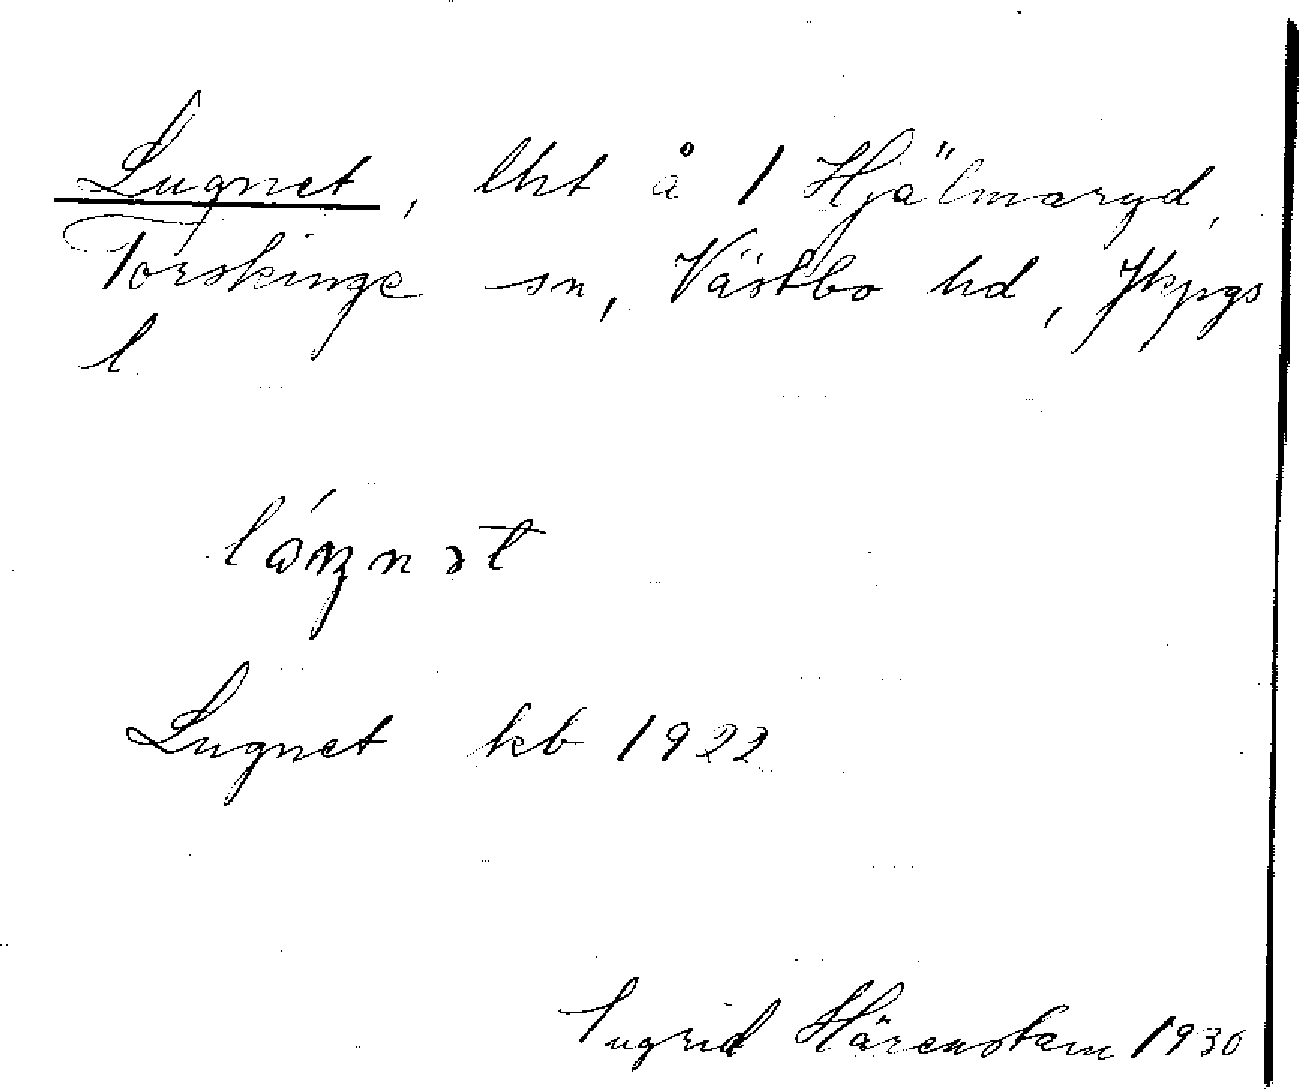 Lugnet, lht å 1 Hjälmaryd,
Torskinge sn, Västbo hd, Jkpgs
l
Lugnet kb 1922
Ingrid Härenstam 1930